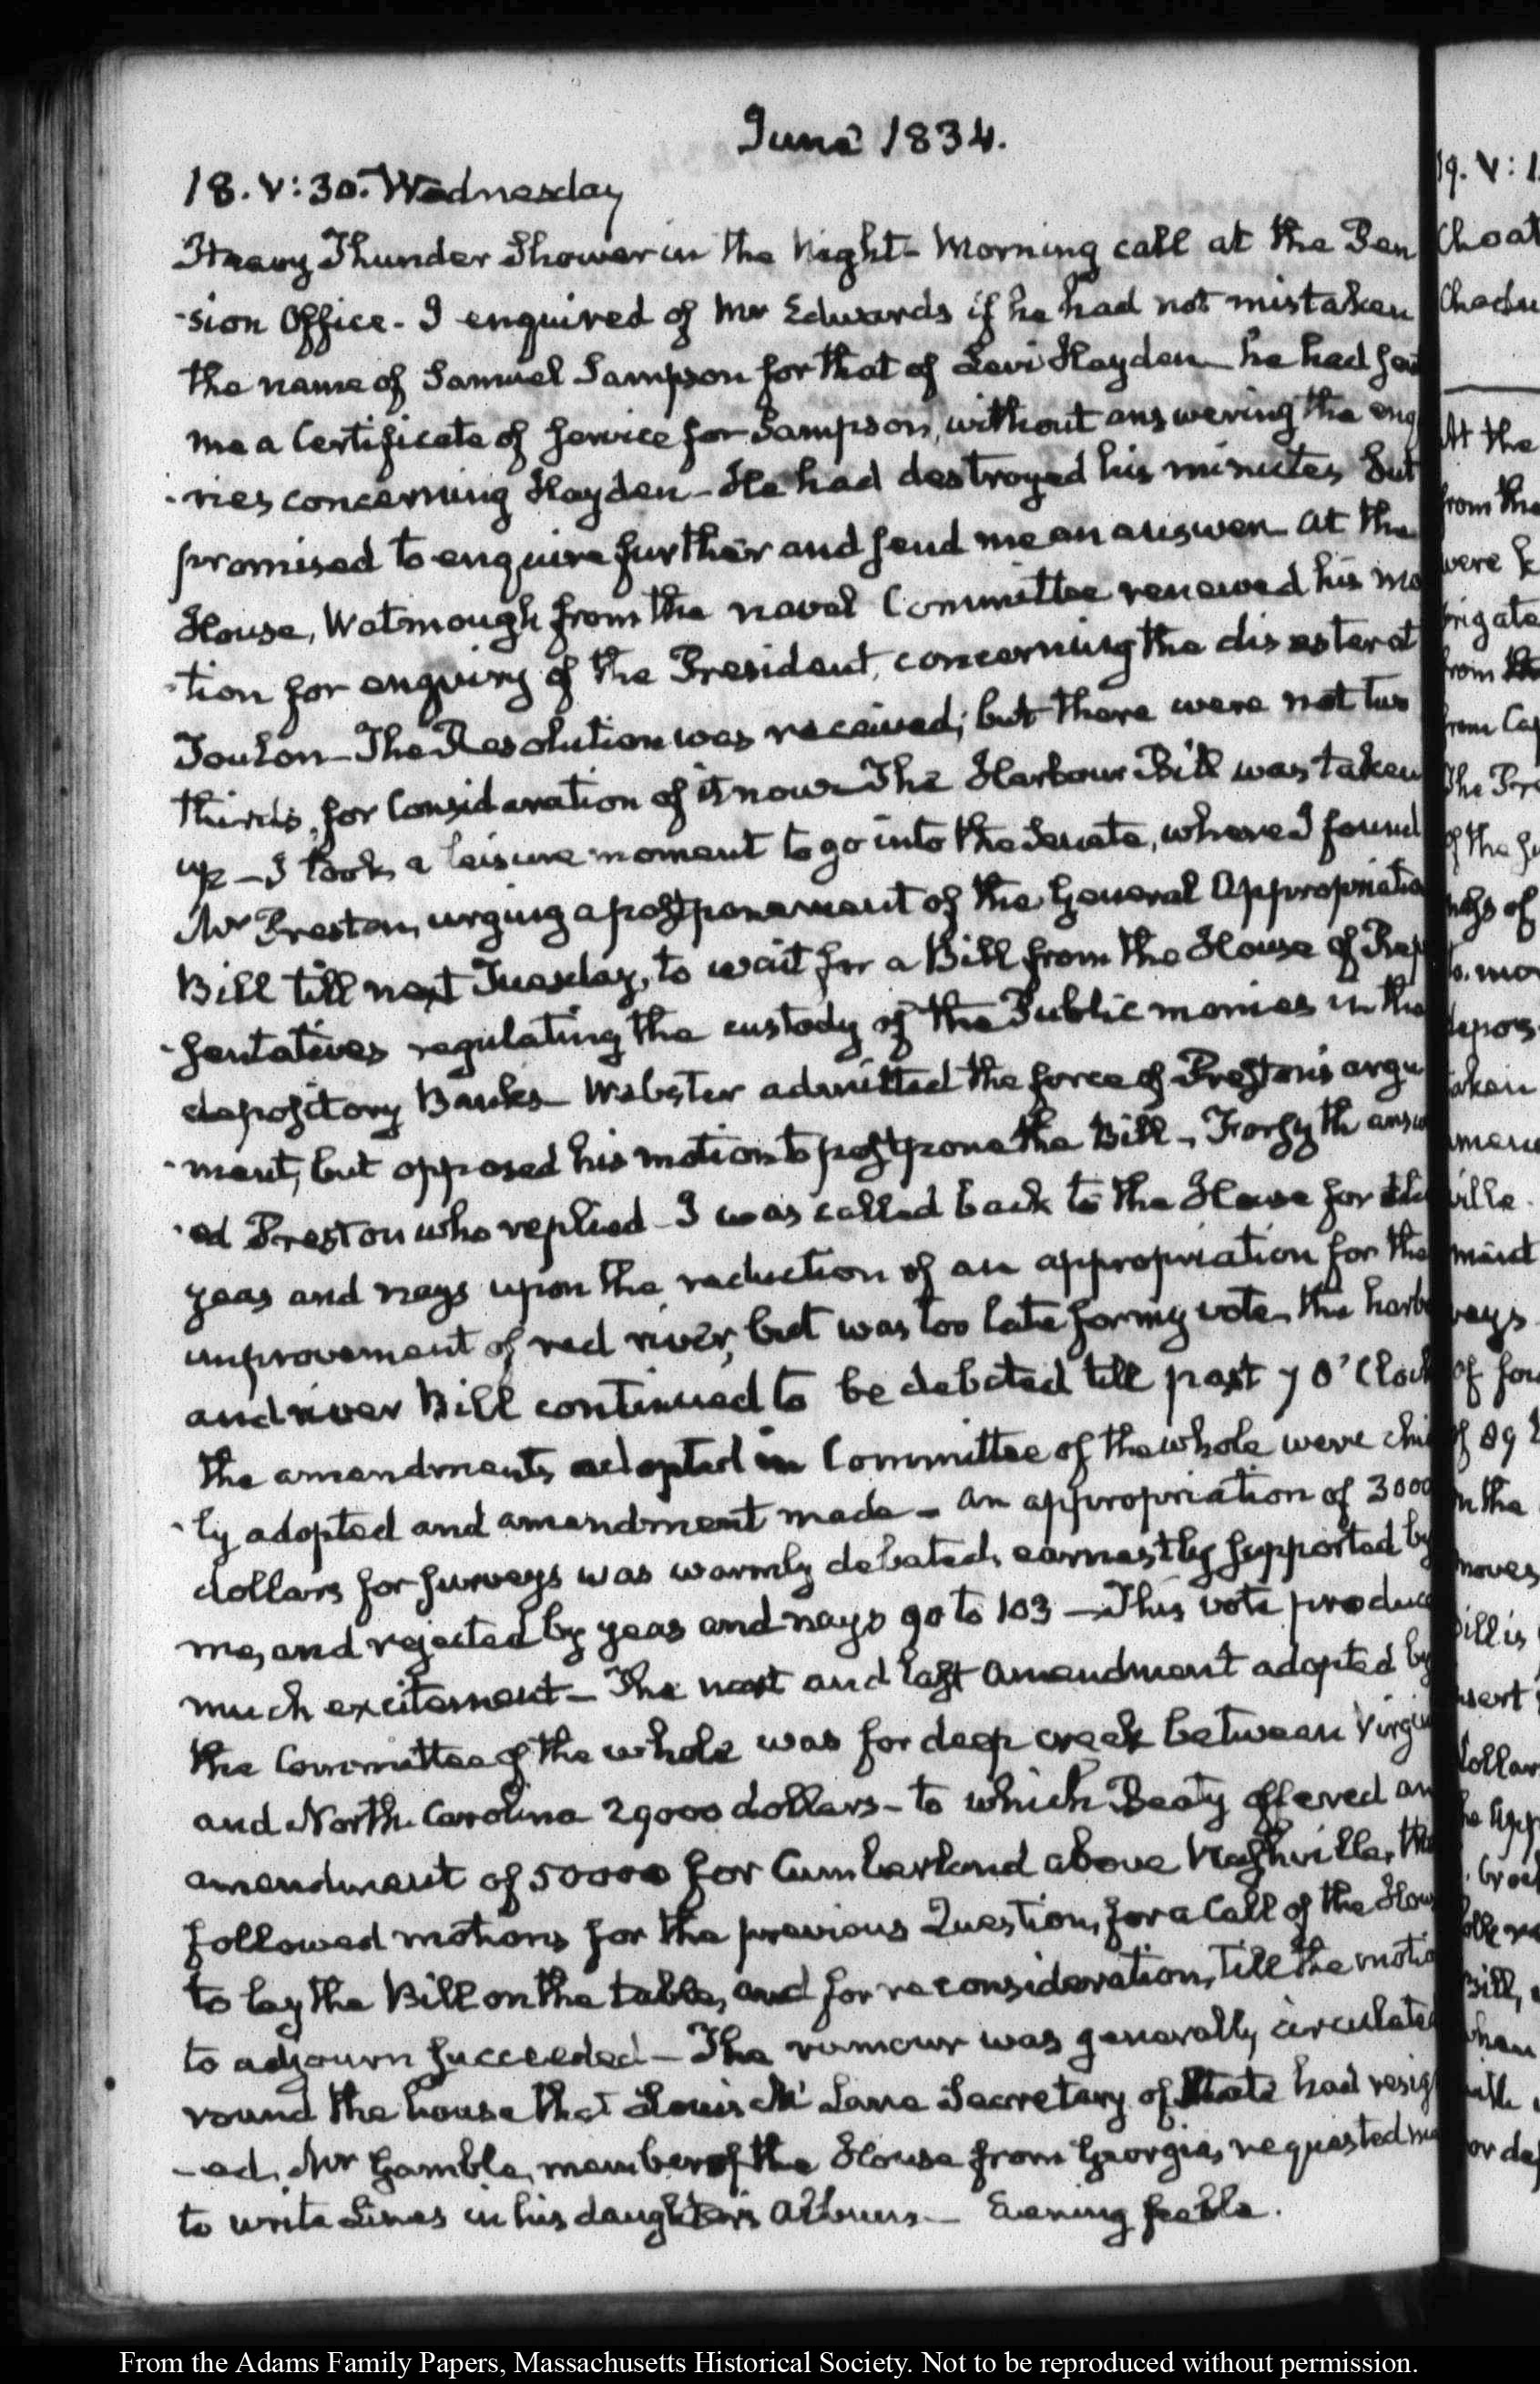 June 1834.
18. V:30. Wednesday
Heavy Thunder Shower in the Night - Morning call at the Pen
-sion Office - I enquired of Mr Edwards if he had not mistaken
the name of Samuel Sampson for that of Levi Hayden - he had sen
me a Certificate of service for Sampson, without answering the enq
-ries concerning Hayden - He had destroyed his minutes but
promised to enquire further and send me an answer - At the
House, Watmough from the naval Committee renewed his mo
-tion for enquiry of the President, concerning the disaster at
Toulon - The Resolution was received; but there were not two
thirds, for Consideration of it now - The Harbour Bill was taken
up - I took a leisure moment to go into the Senate, where I found
Mr Preston, urging a postponement of the General Appropriatio
Bill till next Tuesday, to wait for a Bill from the House of Rep
-sentatives regulating the custody of the Public monies in the
depository Banks - Webster admitted the force of Preston's argu
-ment, but opposed his motion to postpone the Bill - Forsyth answ
-ed Preston who replied - I was called back to the House for the
yeas and nays upon the reduction of an appropriation for the
improvement of red river, but was too late for my vote - the harb
and river Bill continued to be debated till past 7 O'Clock
the amendments adopted in Committee of the whole were chie
-ly adopted and amendment made - An appropriation of 3000
dollars for surveys was warmly debated, earnestly supported by
me, and rejected by yeas and nays 90 to 103 - This vote produc
much excitement - The next and last amendment adopted by
the Committee of the whole was for deep creek between Virgin
and North Carolina 29000 dollars - to which Beaty offered an
amendment of 50000 for Cumberland above Nashville, the
followed motions for the previous Question, for a Call of the Hou
to lay the Bill on the table, and for reconsideration, till the motio
to adjourn succeeded - The rumour was generally circulated
round the house that Louis McLane Secretary of State had resig
-ed. Mr Gamble, member of the House from Georgia, requested me
to write Lines in his daughter's Album - Evening feeble.
19. V: 1
Choat
Chadw
At the
from the
were
rigate
from
from Ca
The Pre
of the
ngs of
mo
depos
aken
amen
ville
maint
nays
of for
of 89
in the
moves
Bill is
sert
dollar
he App
Bill,
when
with
or de
From the Adams Family Papers, Massachusetts Historical Society. Not to be reproduced without permission.